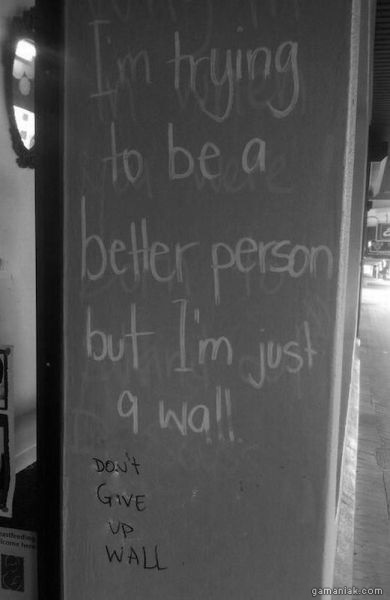 I'm trying
to be a
better person
but I'm just
a wall.
DON'T
GIVE
UP
WALL
eastfeeding
lcome here
gamaniak.com